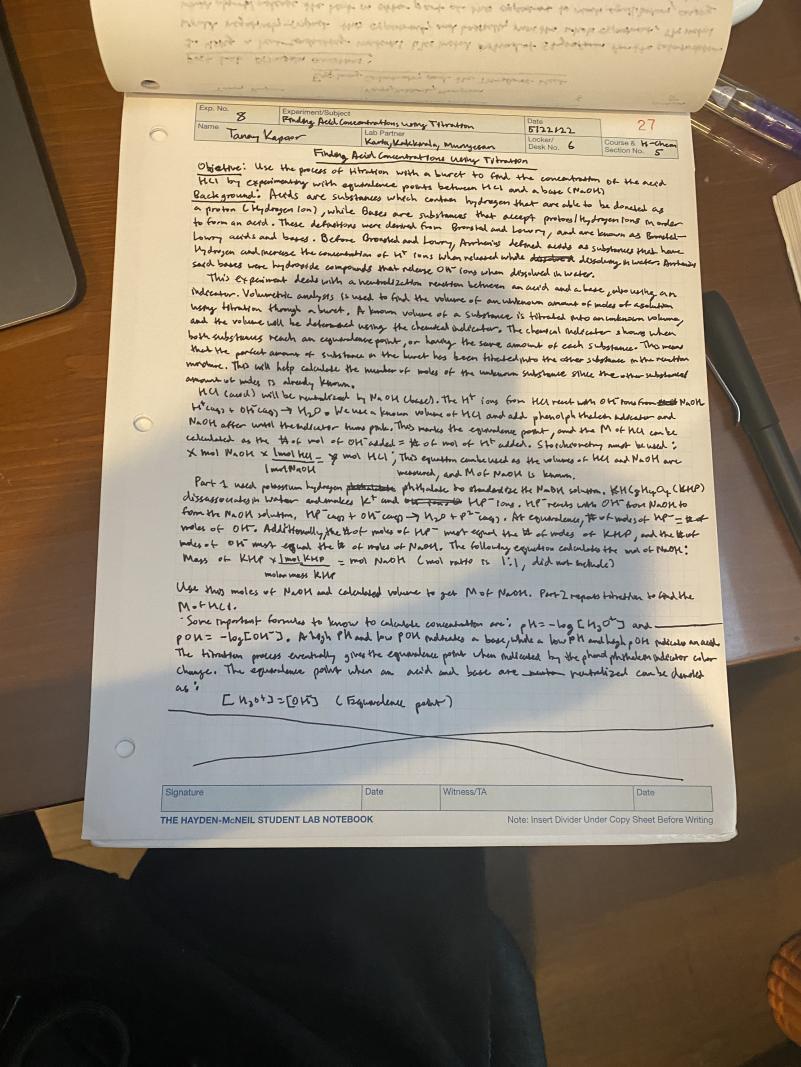 Exp. No. 8
Experiment/Subject Finding Acid Concentrations using Titration
Date 5/22/22
27
Name Tanay Kapoor
Lab Partner
Locker/Desk No. 6
Course & Section No. H-Chem 5
Finding Acid Concentrations Using Titration
Objective: Use the process of titration with a buret to find the concentration of the acid
HCl by experimenting with equivalence points between HCl and a base (NaOH)
Background: Acids are substances which contain hydrogen that are able to be donated as
a proton (Hydrogen Ion), while Bases are substances that accept protons/Hydrogen Ions in order
to form an acid. These definitions were derived from Bronsted and Lowry, and are known as Bronsted-
Lowry acids and bases. Before Bronsted and Lowry, Arrhenius defined acids as substances that have
Hydrogen and increase the concentration of H⁺ Ions when released while dissolving in water. Arrhenius
said bases were hydroxide compounds that release OH⁻ ions when dissolved in water.
This experiment deals with a neutralization reaction between an acid and a base, also using an
indicator. Volumetric analysis is used to find the volume of an unknown amount of moles of a solution
using titration through a buret. A known volume of a substance is titrated into an unknown volume,
and the volume will be determined using the chemical indicator. The chemical indicator shows when
both substances reach an equivalence point, or having the same amount of each substance. This means
that the perfect amount of substance in the buret has been titrated into the other substance in the reaction
mixture. This will help calculate the number of moles of the unknown substance since the other substances
amount of moles is already known.
HCl (acid) will be neutralized by NaOH (base). The H⁺ ions from HCl react with OH⁻ ions from NaOH
H⁺(aq) + OH⁻(aq) → H₂O. We use a known volume of HCl and add phenolphthalein indicator and
NaOH after until the indicator turns pink. This marks the equivalence point, and the M of HCl can be
calculated as the # of mol of OH⁻ added = # of mol of H⁺ added. Stoichiometry must be used:
x mol NaOH × 1 mol HCl = y mol HCl; This equation can be used as the volumes of HCl and NaOH are
1 mol NaOH measured, and M of NaOH is known.
Part 1 used potassium hydrogen phthalate to standardize the NaOH solution. KHC₈H₄O₄ (KHP)
dissassociates in water and makes K⁺ and HP⁻ ions. HP⁻ reacts with OH⁻ from NaOH to
form the NaOH solution, HP⁻(aq) + OH⁻(aq) → H₂O + P²⁻(aq). At equivalence, # of moles of HP⁻ = # of
moles of OH⁻. Additionally, the # of moles of HP⁻ must equal the # of moles of KHP, and the # of
moles of OH⁻ must equal the # of moles of NaOH. The following equation calculates the mol of NaOH:
Mass of KHP × 1 mol KHP = mol NaOH (mol ratio is 1:1, did not include)
molar mass KHP
Use this moles of NaOH and calculated volume to get M of NaOH. Part 2 repeats titration to find the
M of HCl.
Some important formulas to know to calculate concentration are: pH = -log[H₃O⁺] and
pOH = -log[OH⁻]. A high PH and low POH indicates a base, while a low PH and high pOH indicate an acid.
The titration process eventually gives the equivalence point when indicated by the indicator color
change. The equivalence point when an acid and base are neutralized can be denoted
as:
[H₃O⁺] = [OH⁻] (Equivalence point)
Signature
Date
Witness/TA
Date
THE HAYDEN-McNEIL STUDENT LAB NOTEBOOK
Note: Insert Divider Under Copy Sheet Before Writing